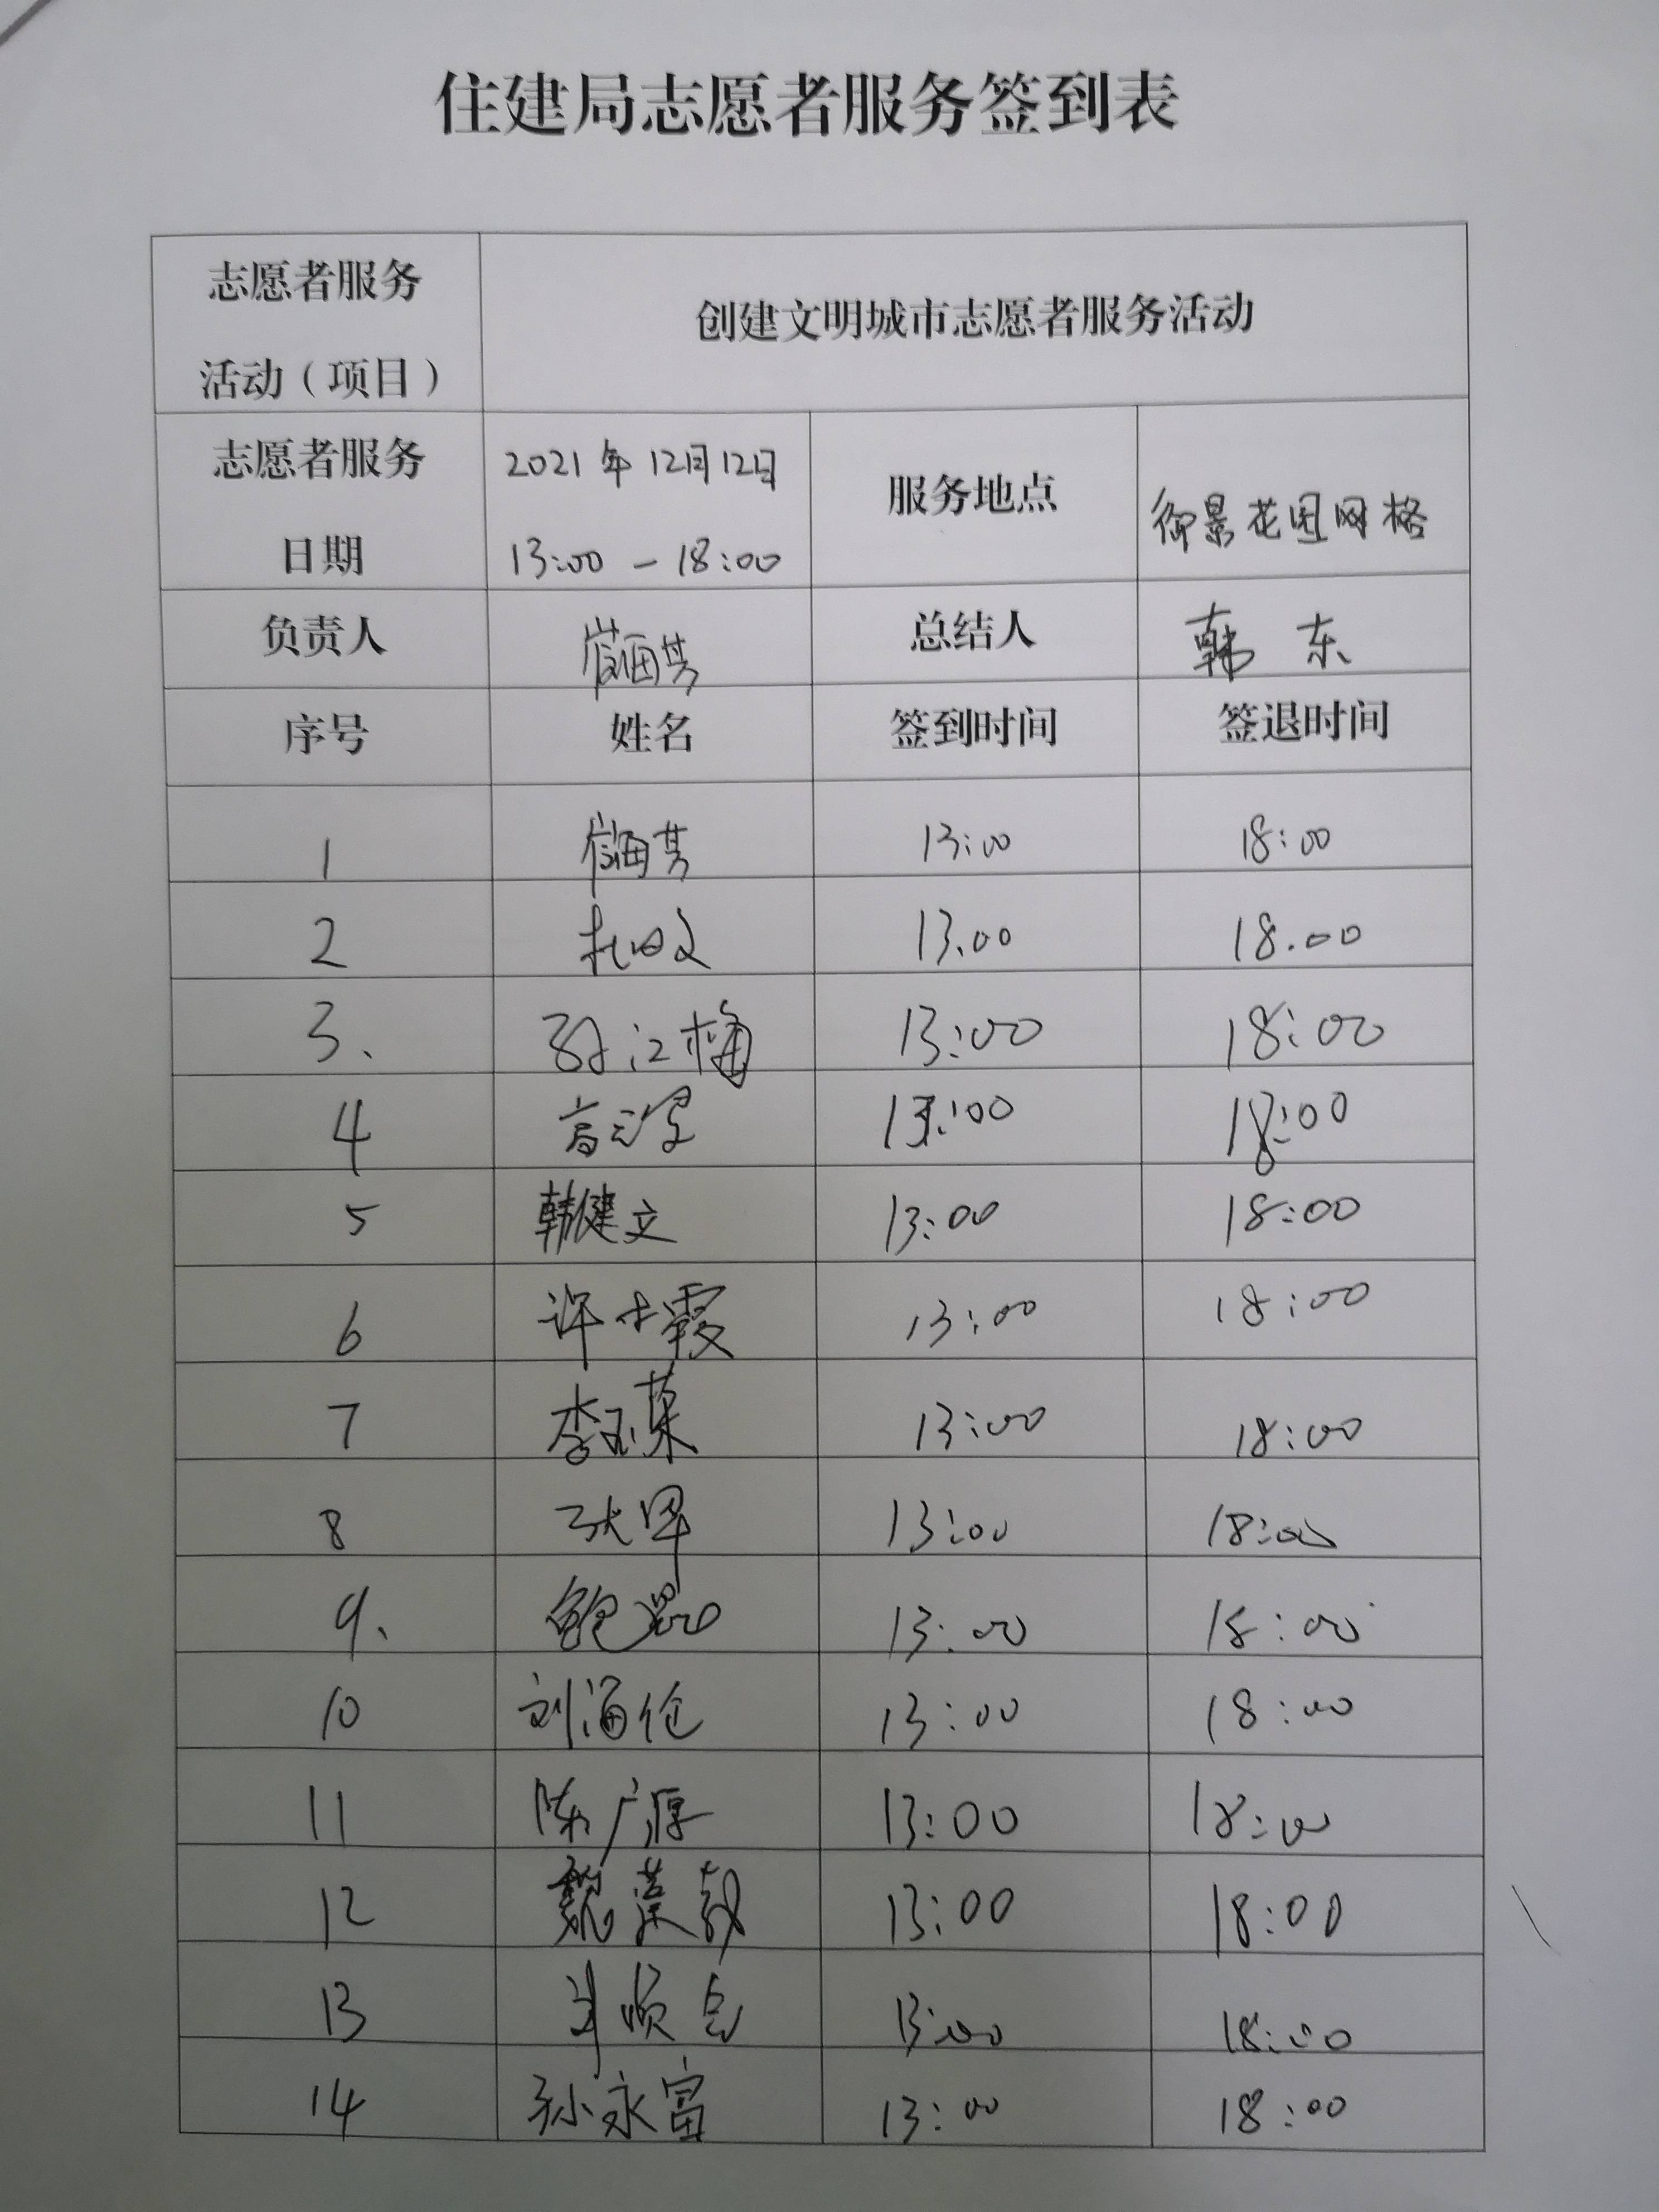 住建局志愿者服务签到表
志愿者服务
活动（项目）
创建文明城市志愿者服务活动
志愿者服务
日期
2021年12月12日
13:00 — 18:00
服务地点
御景花园网格
负责人
总结人
韩东
序号 姓名 签到时间 签退时间
1 13:00 18:00
2 13.00 18.00
3、 孙江梅 13:00 18:00
4 13:00 18:00
5 韩健文 13:00 18:00
6 许士霞 13:00 18:00
7 李玉菜 13:00 18:00
8 13:00 18:00
9、 鲍磊 13:00 18:00
10 刘海伦 13:00 18:00
11 陈广源 13:00 18:00
12 13:00 18:00
13 13:00 18:00
14 孙永富 13:00 18:00